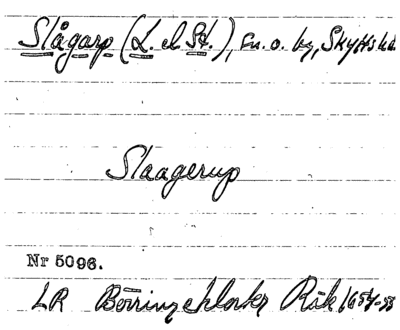 Slågarp (L. el St.), sn. o. by, Skytts hd
Slaagerup
Nr 5096.
LR Börringekloster Räk 1654-55